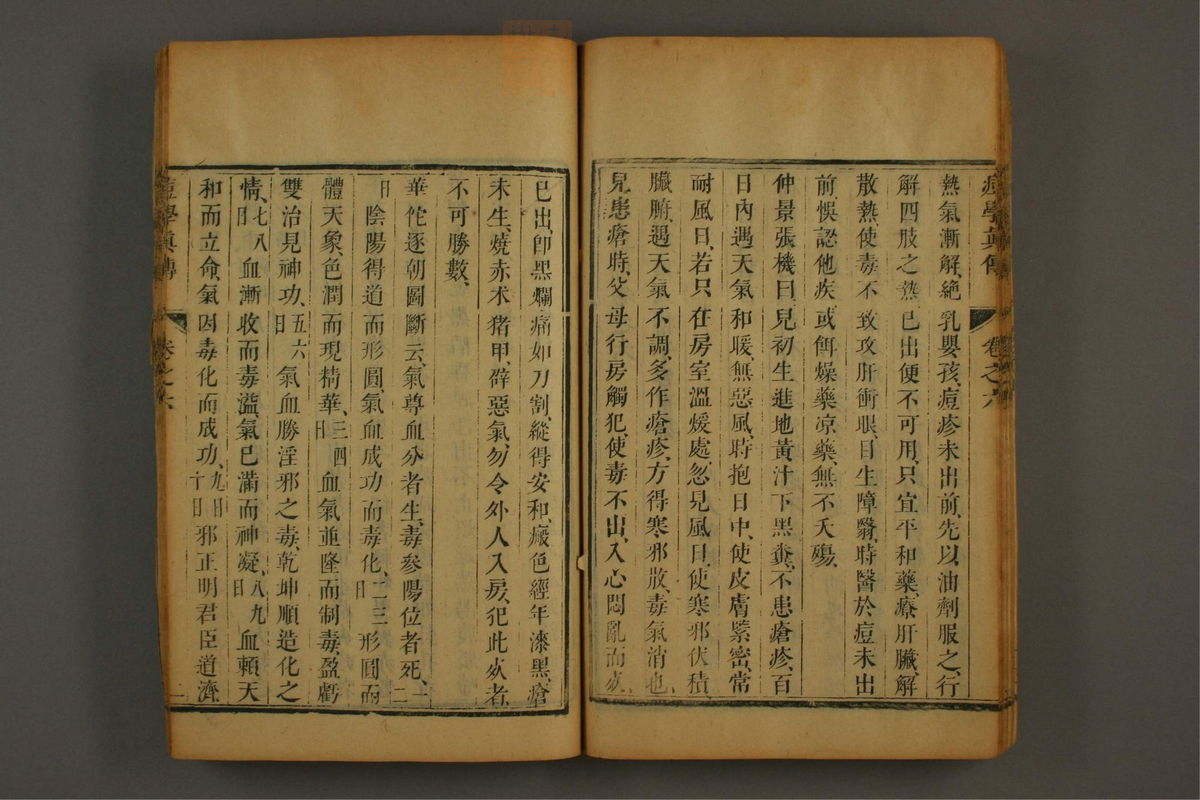 痘學真傳 卷之六
熱氣漸解、絕乳嬰孩、痘疹未出前、先以油劑服之、行
解四肢之熱、已出便不可用、只宜平和藥、療肝臟解
散熱、使毒不致攻肝衝眼、目生障翳、時醫於痘未出
前、悞認他疾、或餌燥藥凉藥、無不夭殤、
仲景張機曰、兒初生進地黃汁下黑糞、不患瘡疹、百
日內遇天氣和暖、無惡風、時抱日中、使皮膚緊密、常
耐風日、若只在房室溫煖處、忽見風日、使寒邪伏積、
臟腑、遇天氣不調、多作瘡疹、方得寒邪散、毒氣消也、
兒患瘡時、父母行房觸犯、使毒不出、入心悶亂而
已出、即黑爛痛如刀割、縱得安和、瘢色經年漆黑、瘡
未生、燒赤朮猪甲、辟惡氣、勿令外人入房、犯此者、
不可勝數、
華佗逐朝圖斷云、氣尊血分者生、毒參陽位者死、一二
日陰陽得道而形圓、氣血成功而毒化、二三日形圓而
體天象、色潤而現精華、三四日血氣並隆而制毒、盈虧
雙治見神功、五六日氣血勝淫邪之毒、乾坤順造化之
情、七八日血漸收而毒溢、氣已滿而神凝、八九日血賴天
和而立命、氣因毒化而成功、九日十日邪正明君臣道濟
痘學真傳 卷之六 二